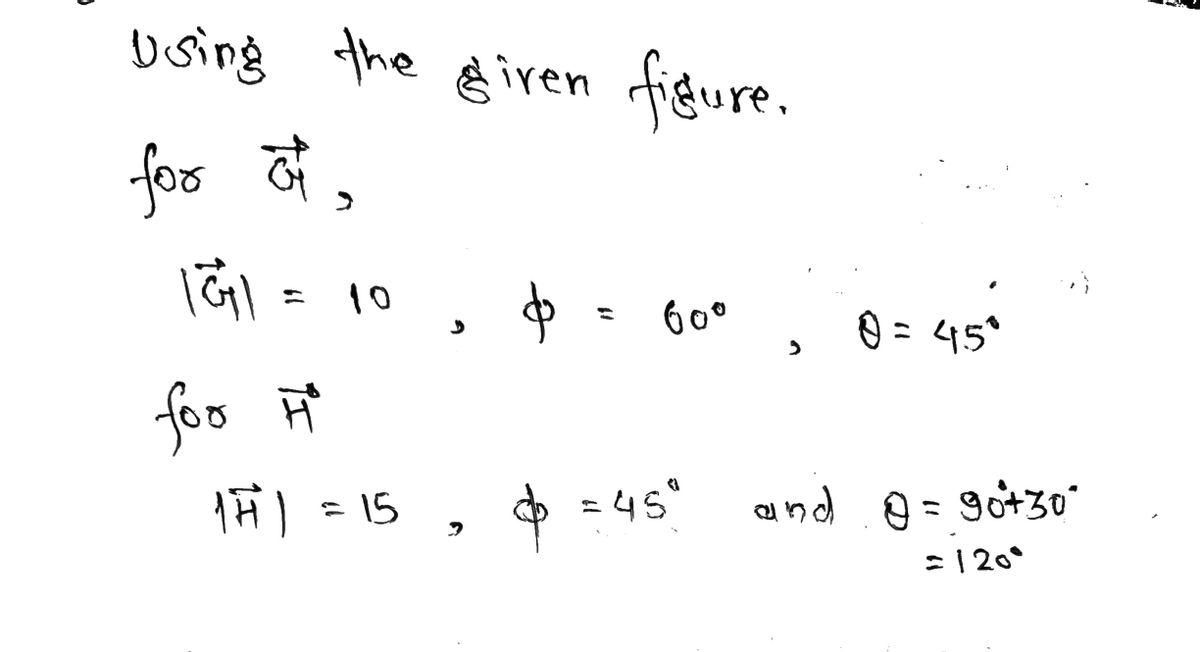 Using the given figure.
for G⃗,
|G⃗| = 10, ϕ = 60°, θ = 45°
for H⃗
|H⃗| = 15, ϕ = 45° and θ = 90°+30°
= 120°